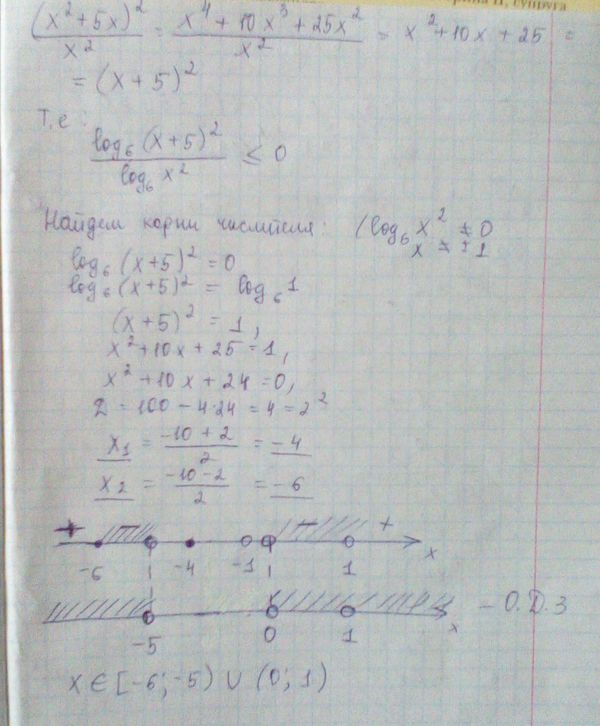 супруга
(x²+5x)²/x² = x⁴+10x³+25x²/x² = x²+10x+25 =
= (x+5)²
Т.е:
log₆(x+5)²/log₆x² ≤ 0
Найдем корни числителя: (log₆x² ≠ 0
x ≠ ±1
log₆(x+5)² = 0
log₆(x+5)² = log₆1
(x+5)² = 1,
x²+10x+25=1,
x²+10x+24=0,
D = 100 - 4·24 = 4 = 2²
x₁ = -10+2/2 = -4
x₂ = -10-2/2 = -6
+ - - +
-6 -4 -1 1 x
-5 0 1 x - О.Д.З
x ∈ [-6; -5) ∪ (0; 1)